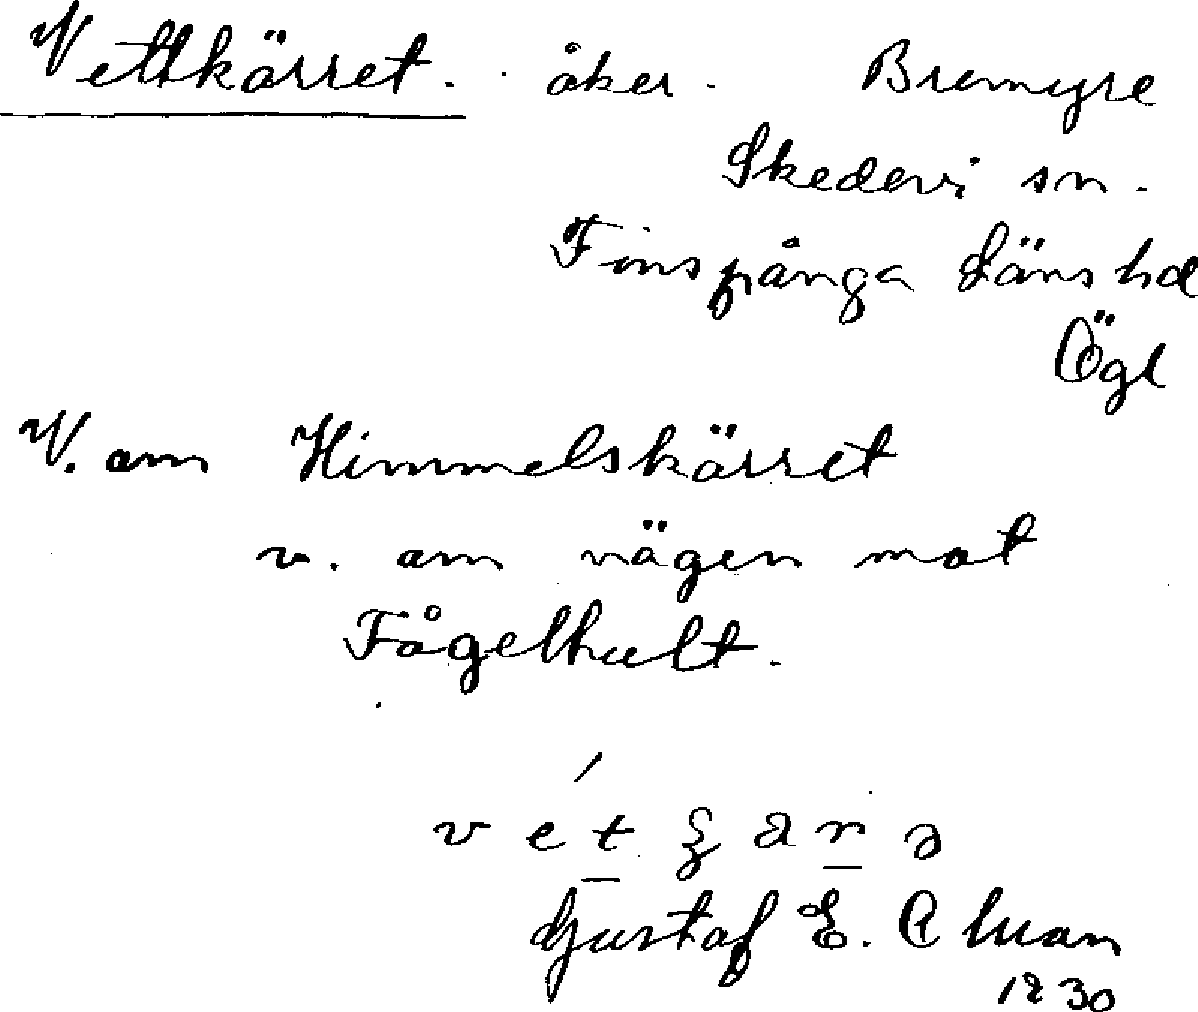 Vettkärret. åker. Bremyre
Skedevi sn.
Finspånga Läns hd
Ögl
V. om Himmelskärret
v. om vägen mot
Fågelhult.
Gustaf E. Alman
1930